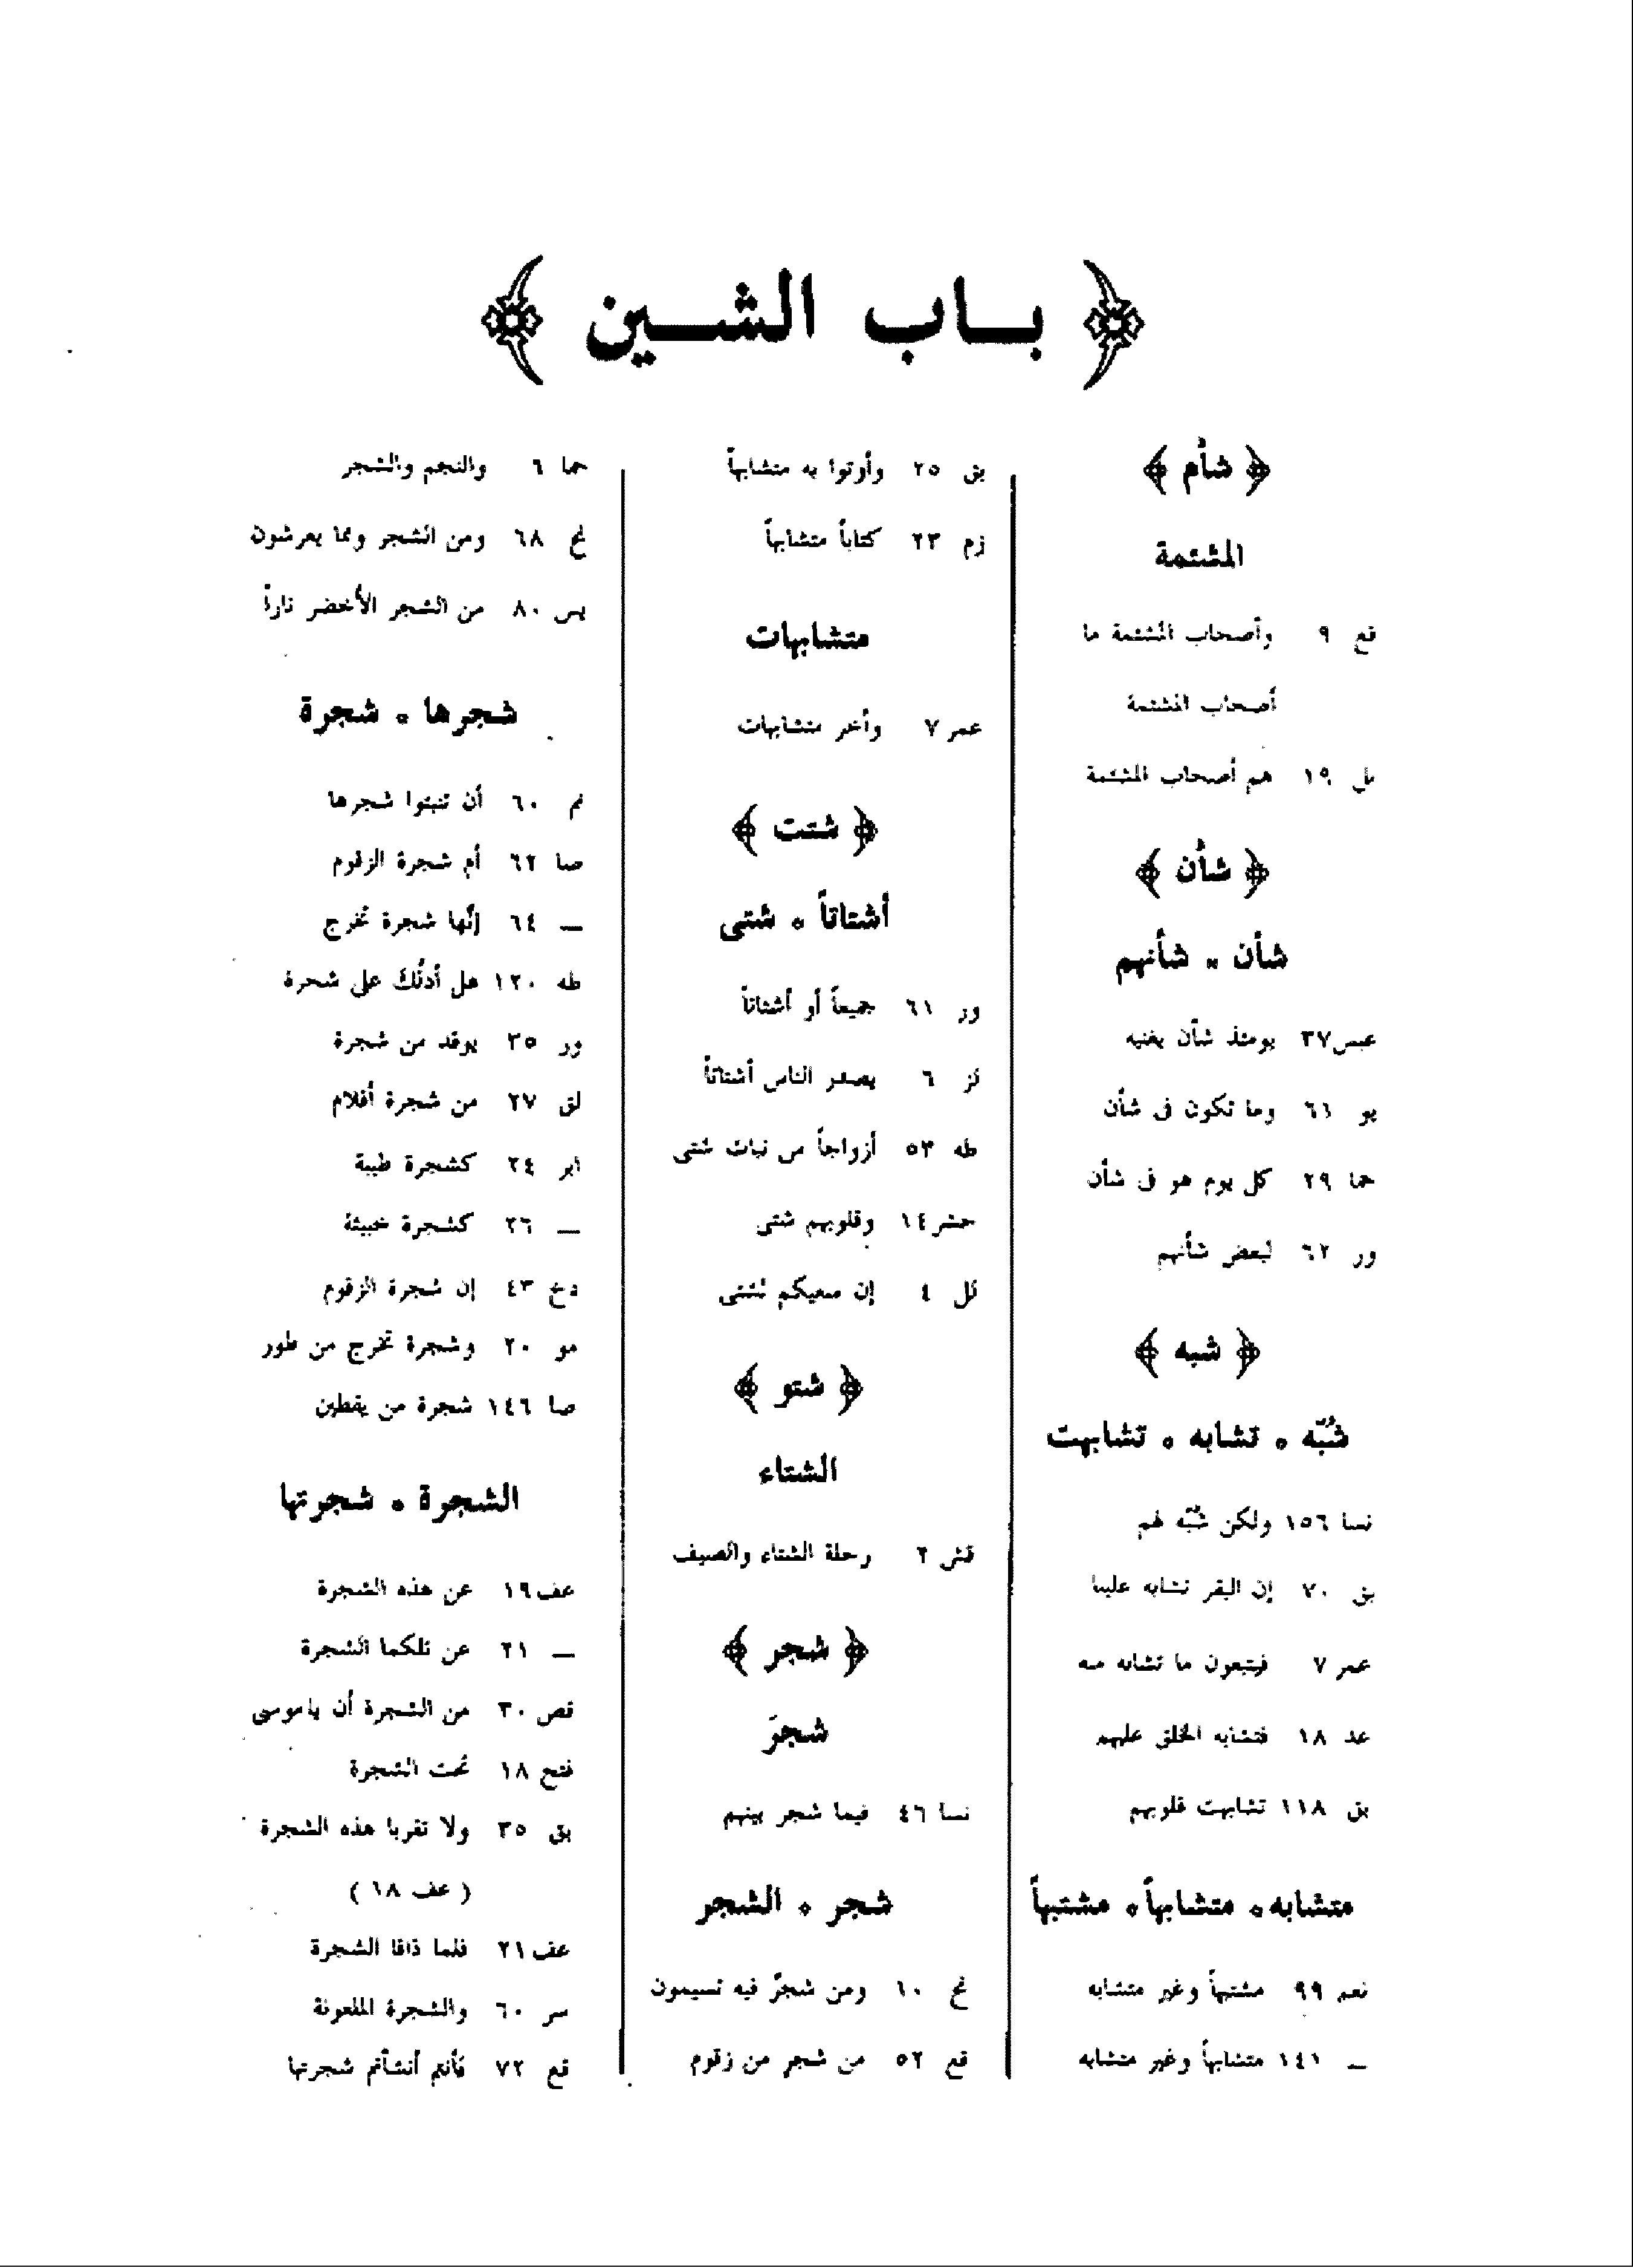 ﴿ بـاب الشـين ﴾
﴿ شأم ﴾
المشئمة
قع ٩ وأصحاب المشئمة ما
أصحاب المشئمة
بل ١٩ هم أصحاب المشئمة
﴿ شأن ﴾
شأن ٭ شأنهم
عبس ٣٧ يومئذ شأن يغنيه
يو ٦١ وما تكون فى شأن
حما ٢٩ كل يوم هو فى شأن
ور ٦٢ لبعض شأنهم
﴿ شبه ﴾
شُبّه ٭ تشابه ٭ تشابهت
نسا ١٥٦ ولكن شُبّه لهم
بق ٧٠ إن البقر تشابه علينا
عمر ٧ فيتبعون ما تشابه منه
عد ١٨ فتشابه الخلق عليهم
بق ١١٨ تشابهت قلوبهم
متشابه ٭ متشابهاً ٭ مشتبهاً
نعم ٩٩ مشتبهاً وغير متشابه
— ١٤١ متشابهاً وغير متشابه
بق ٢٥ وأوتوا به متشابهاً
زم ٢٣ كتاباً متشابهاً
متشابهات
عمر ٧ وأخر متشابهات
﴿ شتت ﴾
أشتاتاً ٭ شتى
ور ٦١ جميعاً أو أشتاتاً
لز ٦ يصدر الناس أشتاتاً
طه ٥٣ أزواجاً من نبات شتى
حشر ١٤ وقلوبهم شتى
لل ٤ إن سعيكم لشتى
﴿ شتو ﴾
الشتاء
قش ٢ رحلة الشتاء والصيف
﴿ شجر ﴾
شجرَ
نسا ٤٦ فيما شجر بينهم
شجر ٭ الشجر
نح ١٠ ومن شجرٌ فيه تسيمون
قع ٥٢ من شجر من زقوم
حما ٦ والنجم والشجر
نح ٦٨ ومن الشجر ومما يعرشون
يس ٨٠ من الشجر الأخضر ناراً
شجرها ٭ شجرة
نم ٦٠ أن تنبتوا شجرها
صا ٦٢ أم شجرة الزقوم
— ٦٤ إنّها شجرة تخرج
طه ١٢٠ هل أدلّك على شجرة
ور ٣٥ يوقد من شجرة
لق ٢٧ من شجرة أقلام
ابر ٢٤ كشجرة طيبة
— ٢٦ كشجرة خبيثة
دخ ٤٣ إن شجرة الزقوم
مو ٢٠ وشجرة تخرج من طور
صا ١٤٦ شجرة من يقطين
الشجرة ٭ شجرتها
عف ١٩ عن هذه الشجرة
— ٢١ عن تلكما الشجرة
قص ٣٠ من الشجرة أن ياموسى
فتح ١٨ تحت الشجرة
بق ٣٥ ولا تقربا هذه الشجرة
( عف ١٨ )
عف ٢١ فلما ذاقا الشجرة
سر ٦٠ والشجرة الملعونة
قع ٧٢ ءأنتم أنشأتم شجرتها